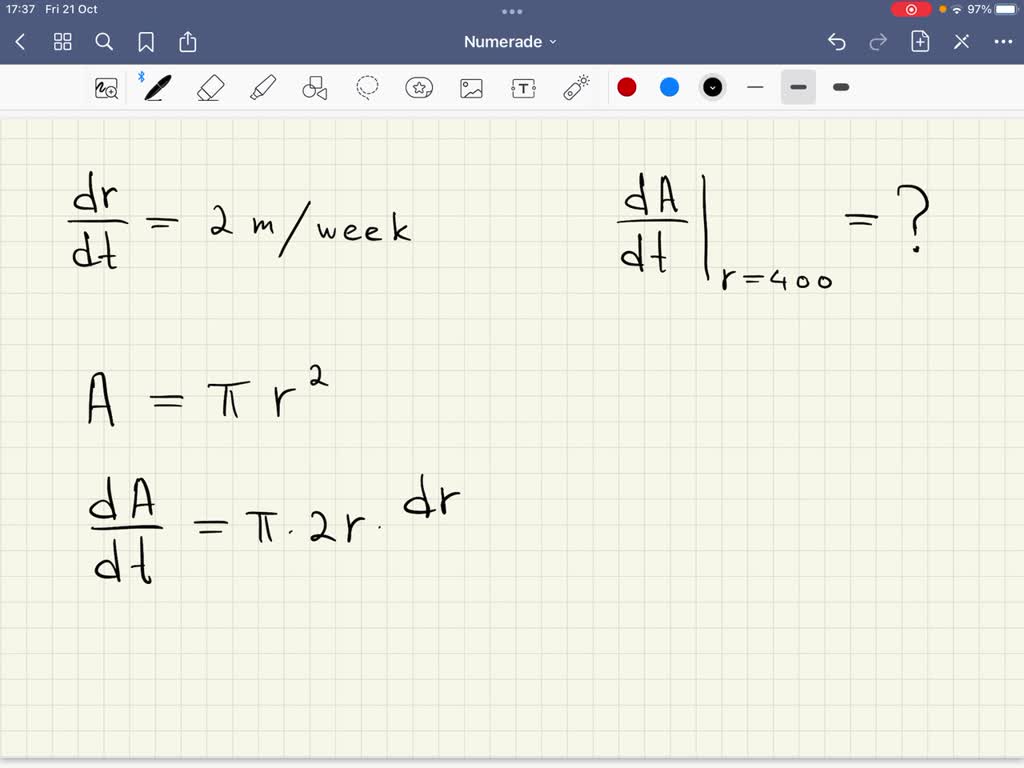 17:37 Fri 21 Oct
97%
Numerade
T
dr/dt = 2 m/week
dA/dt | r=400 = ?
A = π r²
dA/dt = π · 2r · dr